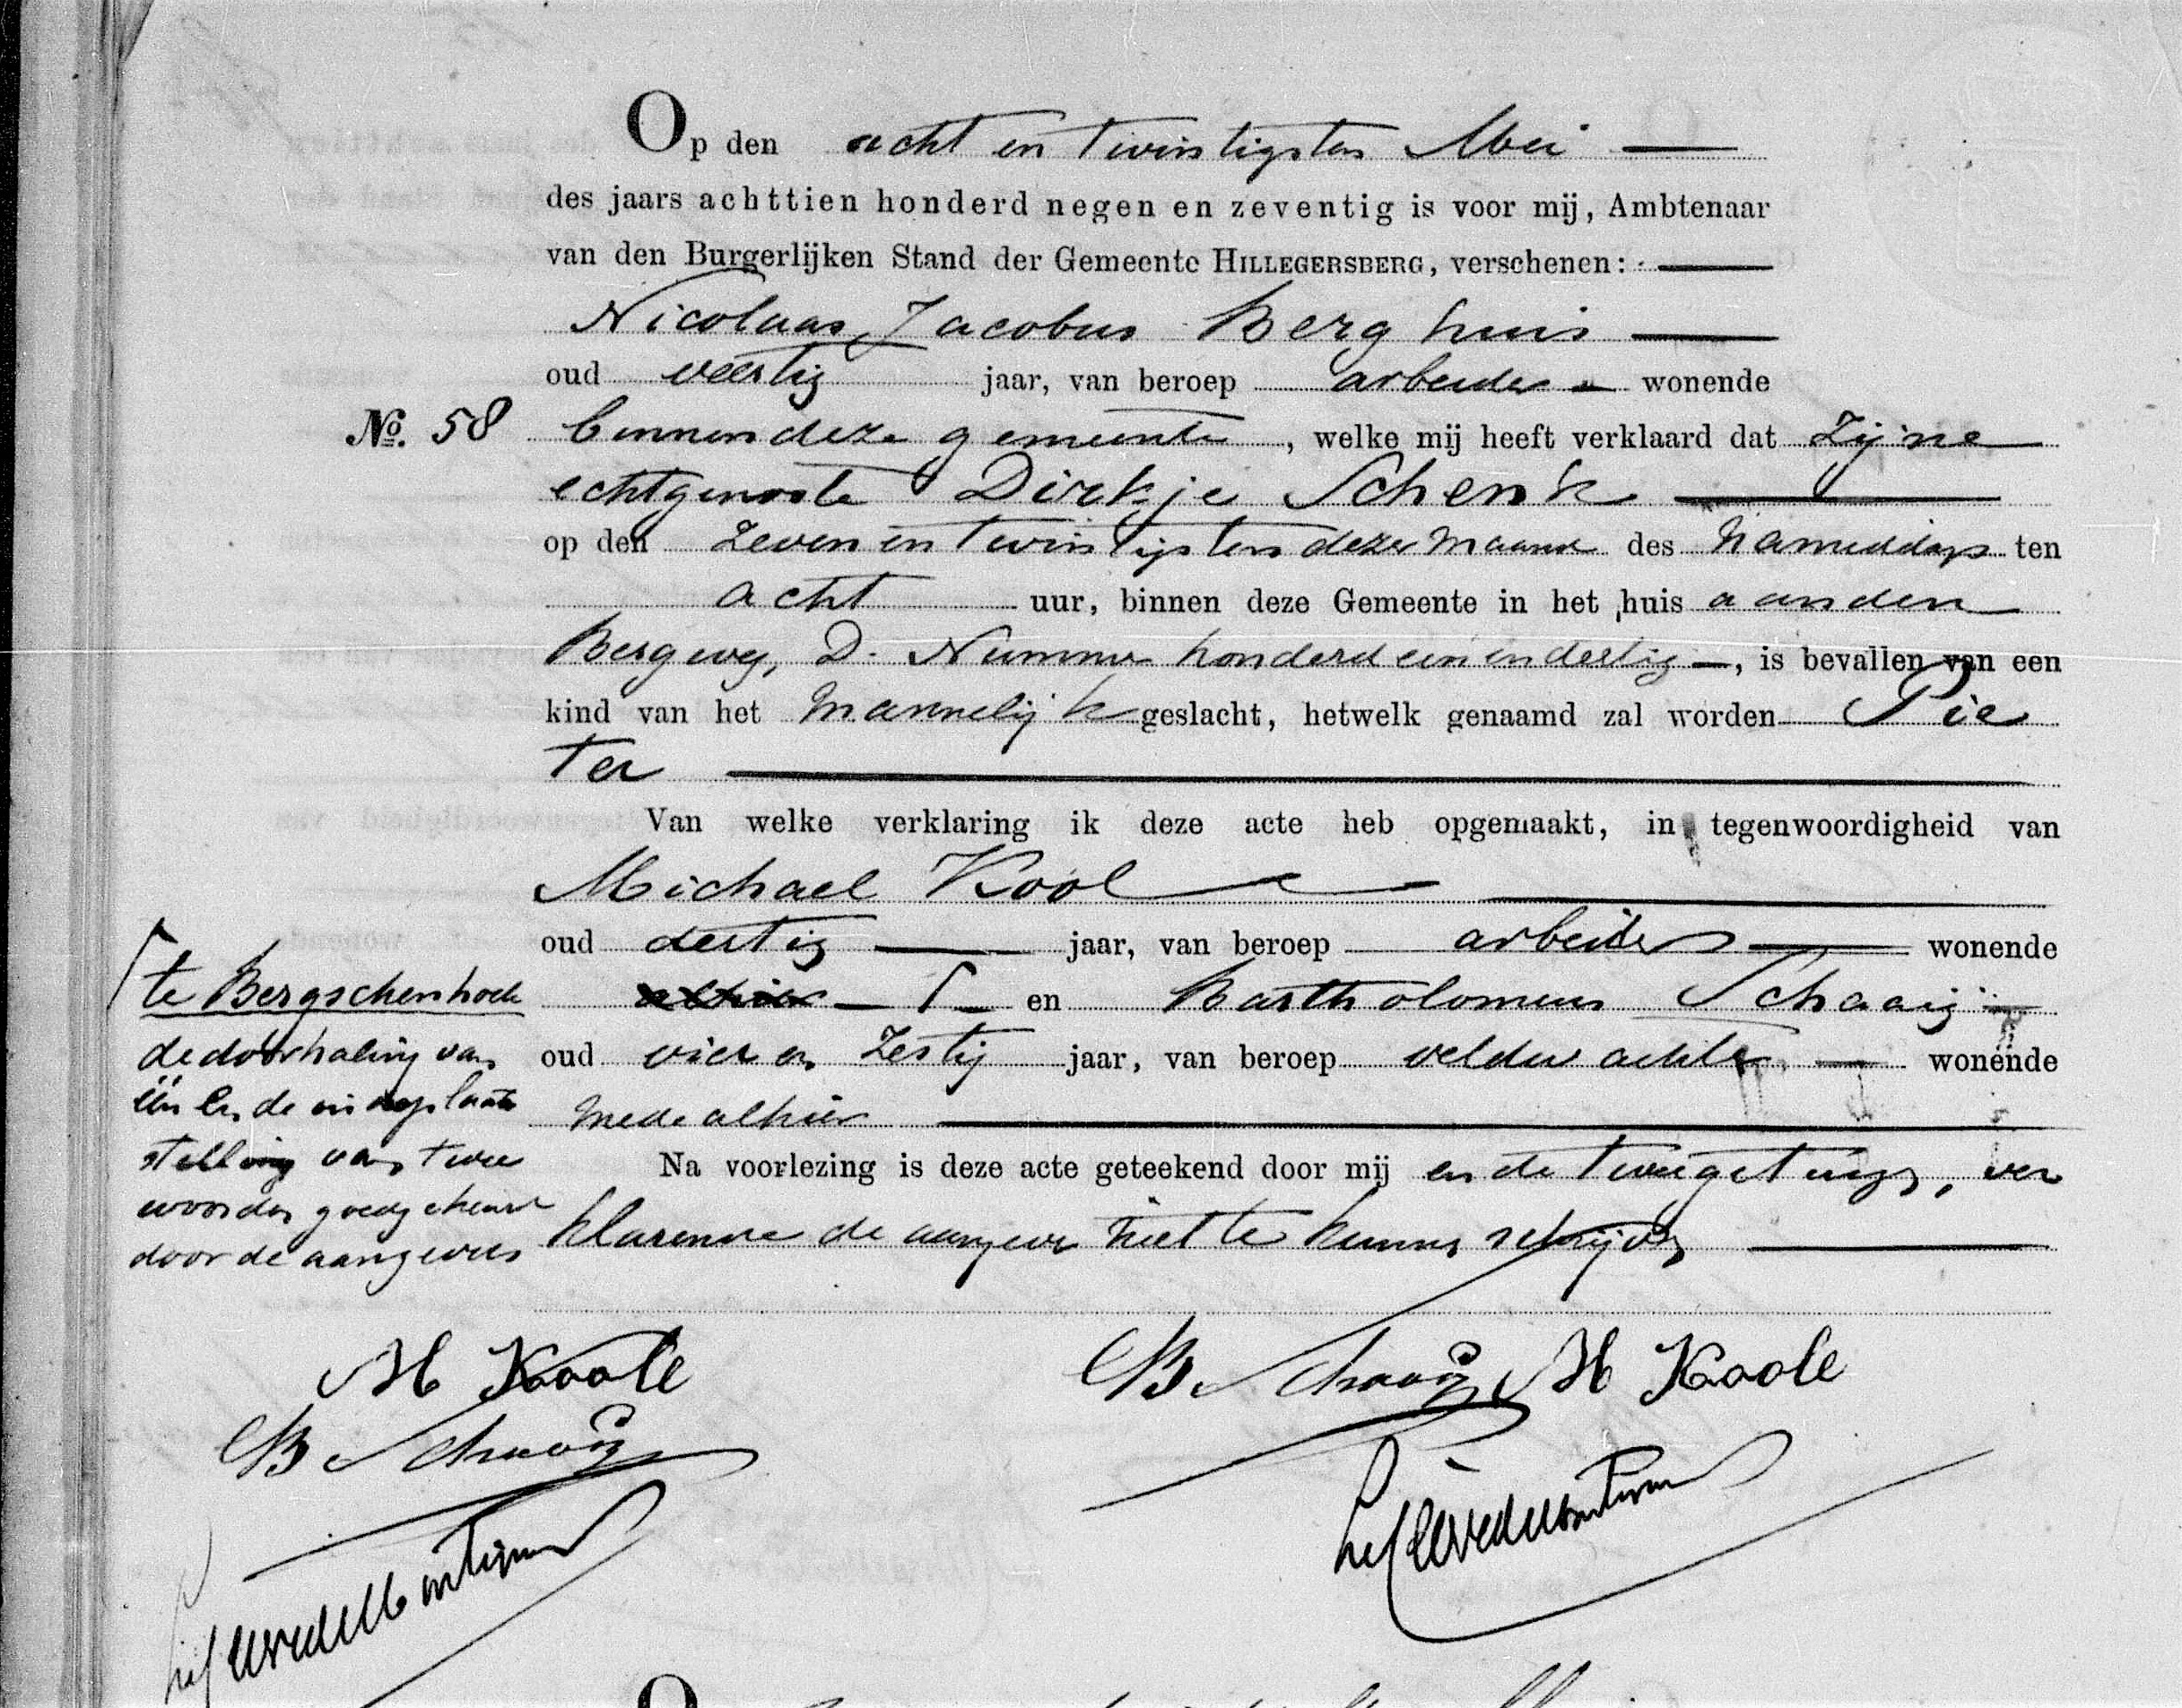 Op den acht en twintigsten Mei
des jaars achttien honderd negen en zeventig is voor mij, Ambtenaar
van den Burgerlijken Stand der Gemeente HILLEGERSBERG, verschenen:
Nicolaas Jacobus Berghuis
oud veertig jaar, van beroep arbeider wonende
No. 58 binnen deze gemeente, welke mij heeft verklaard dat zijne
echtgenoote Dirkje Schenk
op den zeven en twintigsten dezer maand des namiddags ten
acht uur, binnen deze Gemeente in het huis aan den
Bergweg, D. Nummer honderd een en dertig, is bevallen van een
kind van het mannelijk geslacht, hetwelk genaamd zal worden Pie
ter
Van welke verklaring ik deze acte heb opgemaakt, in tegenwoordigheid van
Michael Kool
oud dertig jaar, van beroep arbeider wonende
alhier en Bartholomeus Schaaij
oud vier en zestig jaar, van beroep veldwachter wonende
mede alhier
Na voorlezing is deze acte geteekend door mij en de twee getuigen, ver
klarende de aangever niet te kunnen schrijven
te Bergschenhoek
de doorhaling van
één en de in de plaats
stelling van twee
woorden goedgekeurd
door de aangever
M Koole
B Schaaij
B Schaaij M Koole